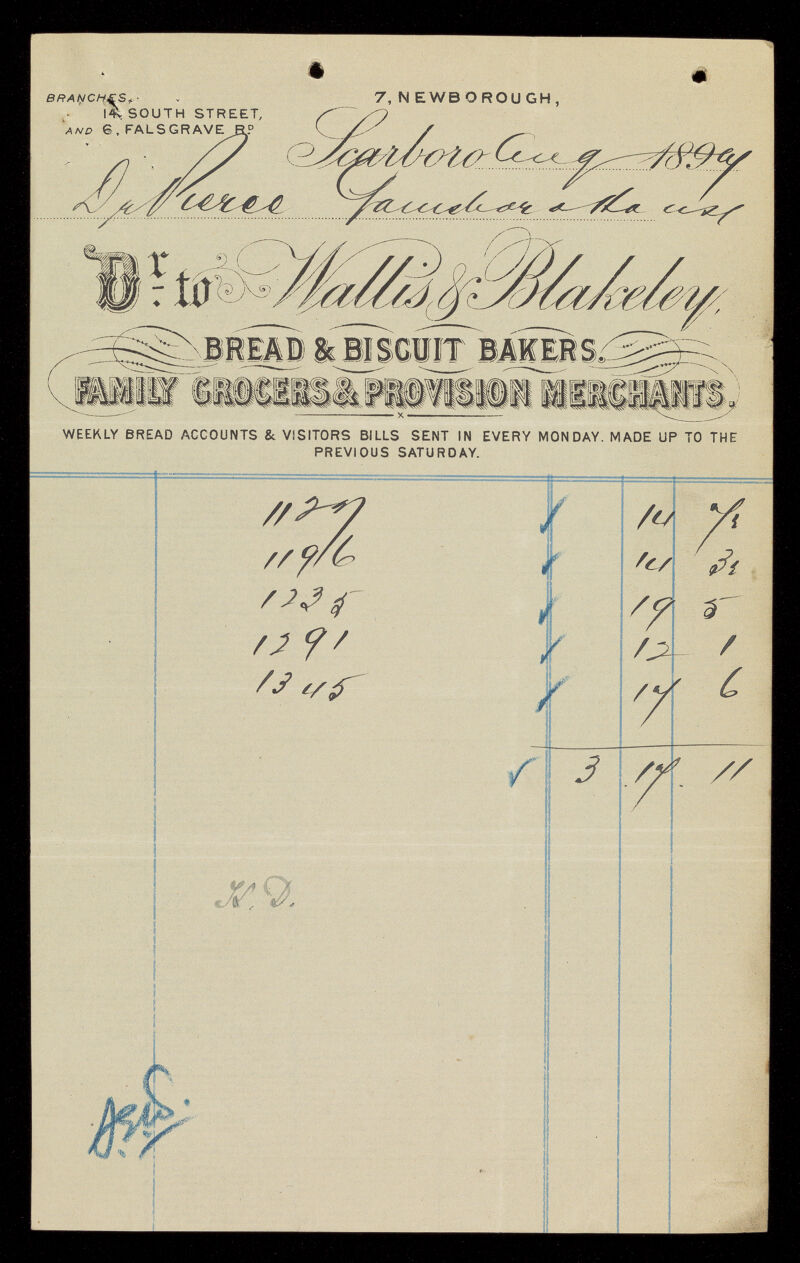 BRANCHES.
14, SOUTH STREET,
AND 6, FALSGRAVE RD
7, NEWBOROUGH,
Scarboro Aug 1897
Dr Pierce Gainsboro House
Dr. to Wallis & Blakeley,
BREAD & BISCUIT BAKERS.
FAMILY GROCERS & PROVISION MERCHANTS.
WEEKLY BREAD ACCOUNTS & VISITORS BILLS SENT IN EVERY MONDAY. MADE UP TO THE
PREVIOUS SATURDAY.
1127 ✓ 14 7½
1196 ✓ 14 3½
1235 ✓ 19 5
1291 ✓ 12 1
1345 ✓ 17 6
✓ 3 . 17 . 11
H. D.